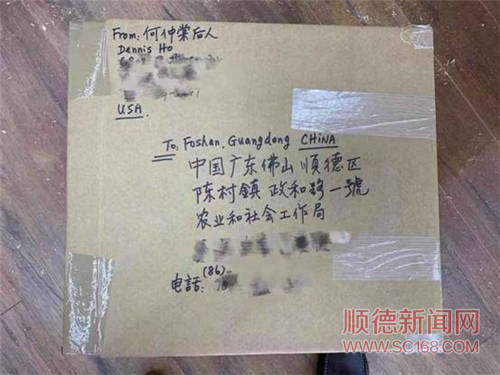 From: 何仲棠后人
Dennis Ho
USA.
To: Foshan, Guangdong CHINA
中国广东佛山顺德区
陈村鎮 政和路一號
农业和社会工作局
(86)-
电話:
顺德新闻网
www.SC168.com